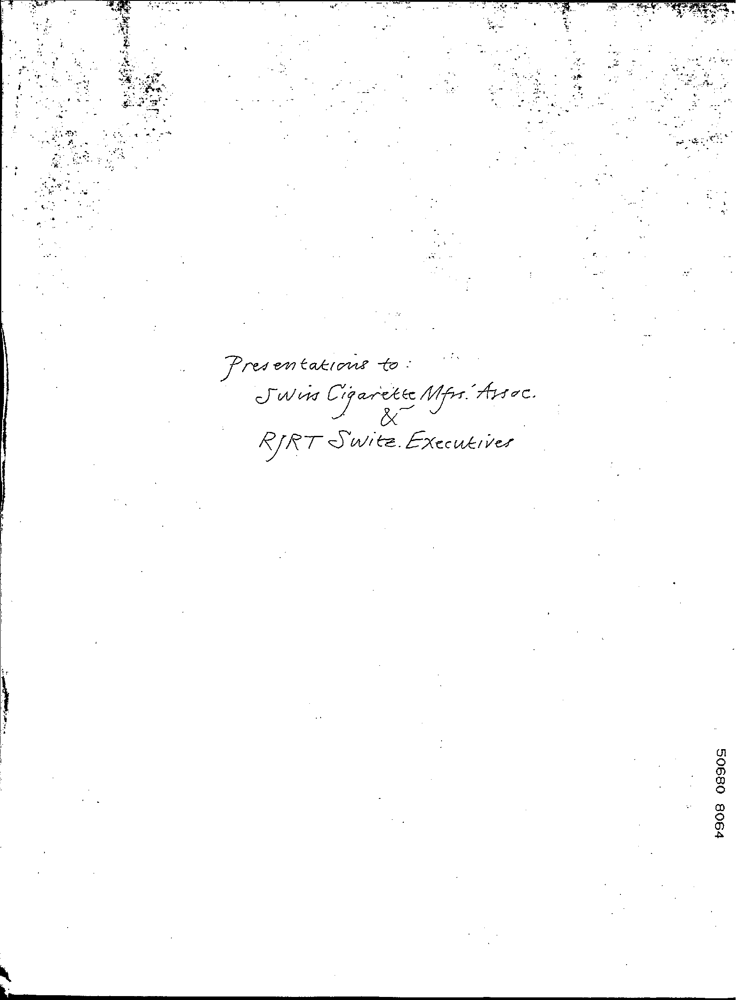 Presentations to:
Swiss Cigarette Mfrs.' Assoc.
&
RJRT Switz. Executives
50680 8064